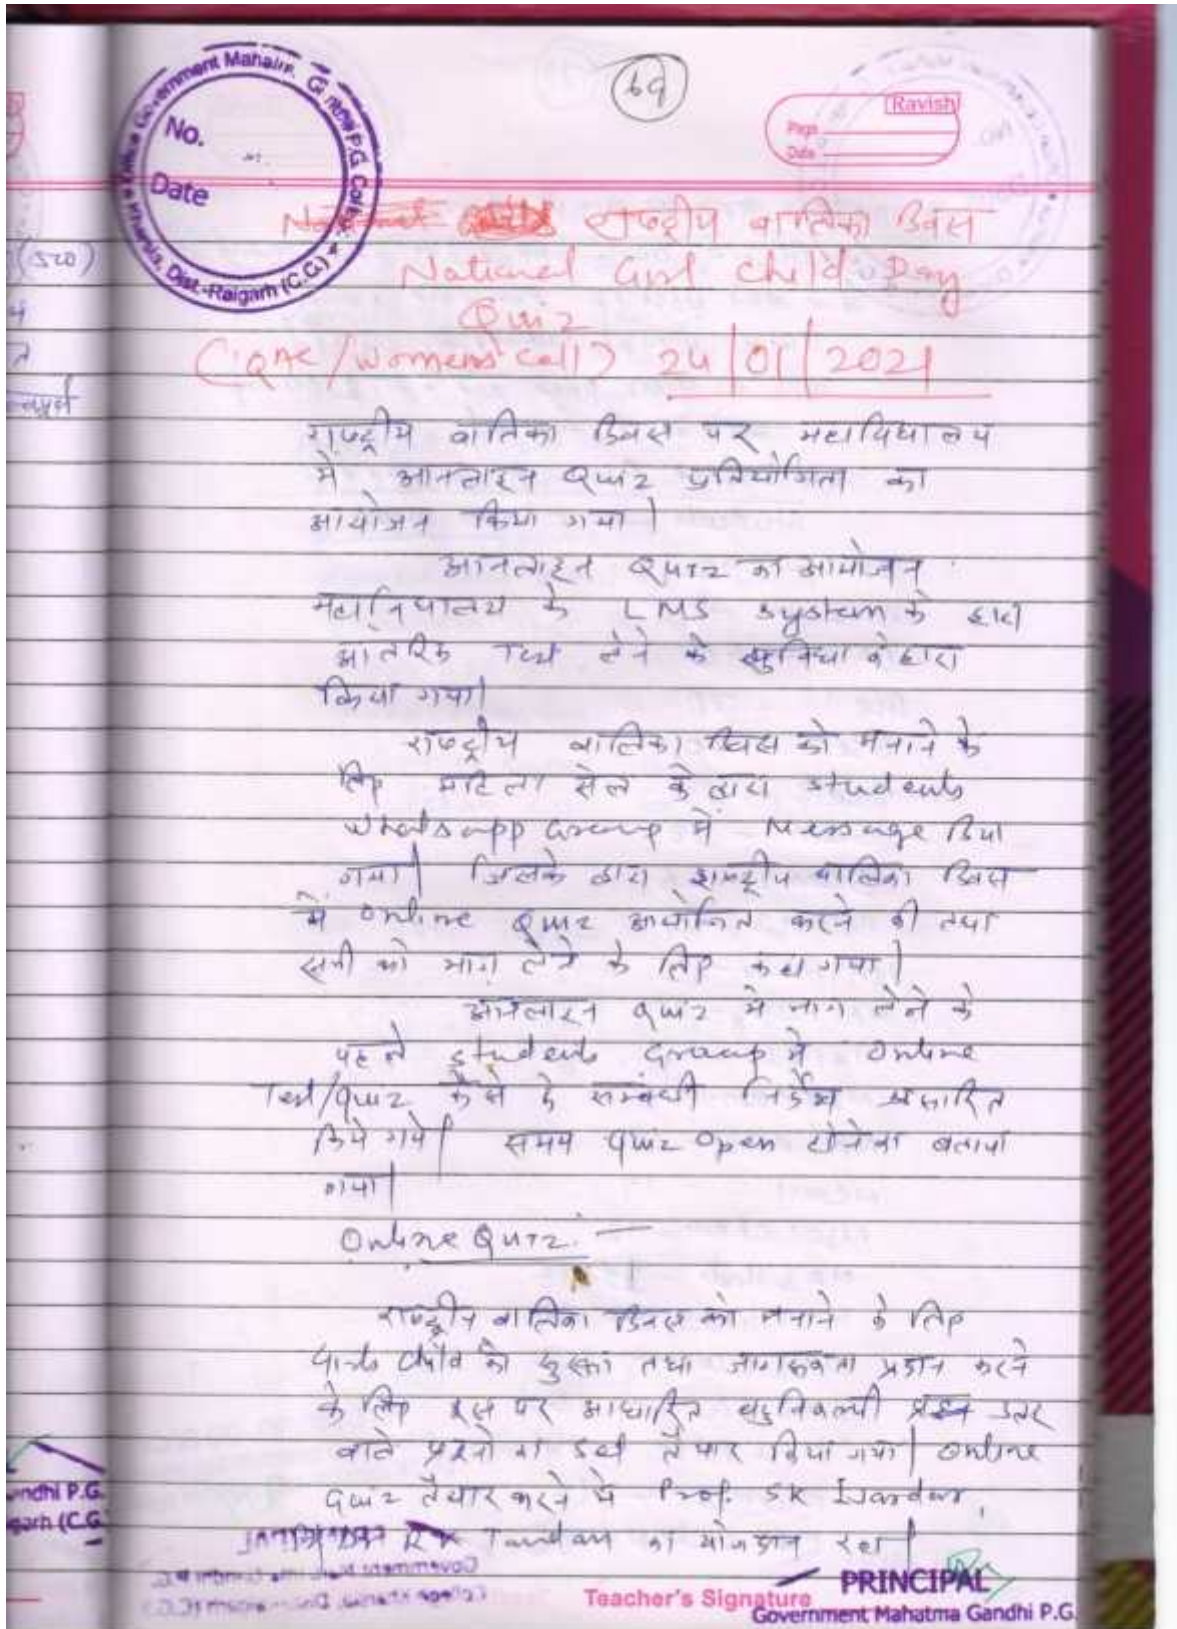 69
Ravish
Page
Date
No.
Date
Dist.-Raigarh (C.G.)
राष्ट्रीय बालिका दिवस
National Girl Child Day
Quiz
(IQAC/Womens' Cell) 24/01/2021
राष्ट्रीय बालिका दिवस पर महाविद्यालय
में आनलाइन Quiz प्रतियोगिता का
आयोजन किया गया।
आनलाइन Quiz का आयोजन
महाविद्यालय के LMS System के द्वारा
आंतरिक Test लेने के सुविधा के द्वारा
किया गया।
राष्ट्रीय बालिका दिवस को मनाने के
लिए महिला सेल के द्वारा Students
Whatsapp Group में Message दिया
गया। जिसके द्वारा राष्ट्रीय बालिका दिवस
में Online Quiz आयोजित करने की तथा
सभी को भाग लेने के लिए कहा गया।
आनलाइन Quiz में भाग लेने के
पहले Students Group में Online
Test/Quiz कैसे दे सम्बंधी निर्देश प्रसारित
किये गये। समय Quiz Open होने का बताया
गया।
Online Quiz:-
राष्ट्रीय बालिका दिवस को मनाने के लिए
को सुरक्षा तथा जागरूकता प्रदान करने
के लिए इस पर आधारित बहुविकल्पी प्रश्न उत्तर
वाले प्रश्नों का तैयार किया गया। Online
Quiz तैयार करने में Prof. SK Ijardar,
R K Tandan का योगदान रहा।
Teacher's Signature
PRINCIPAL
Government Mahatma Gandhi P.G.
(520)
andhi P.G.
garh (C.G